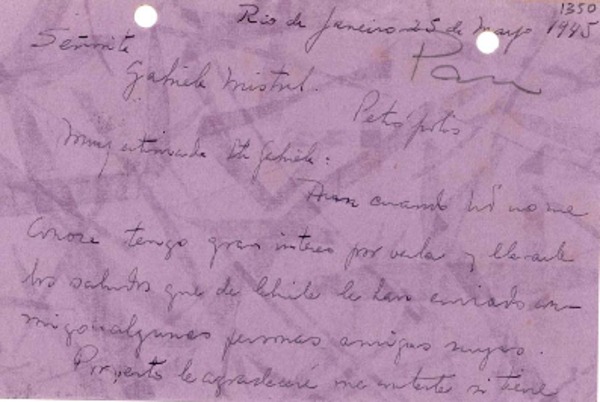 1350
Rio de Janeiro 25 de Mayo 1945
Señorita
Gabriela Mistral.
Petrópolis
Muy estimada Gabriela:
Aun cuando Ud no me
conoce tengo gran interes por verla y llevarle
los saludos que de Chile le han enviado con-
migo algunas personas amigas suyas.
Por esto le agradeceré me si tiene